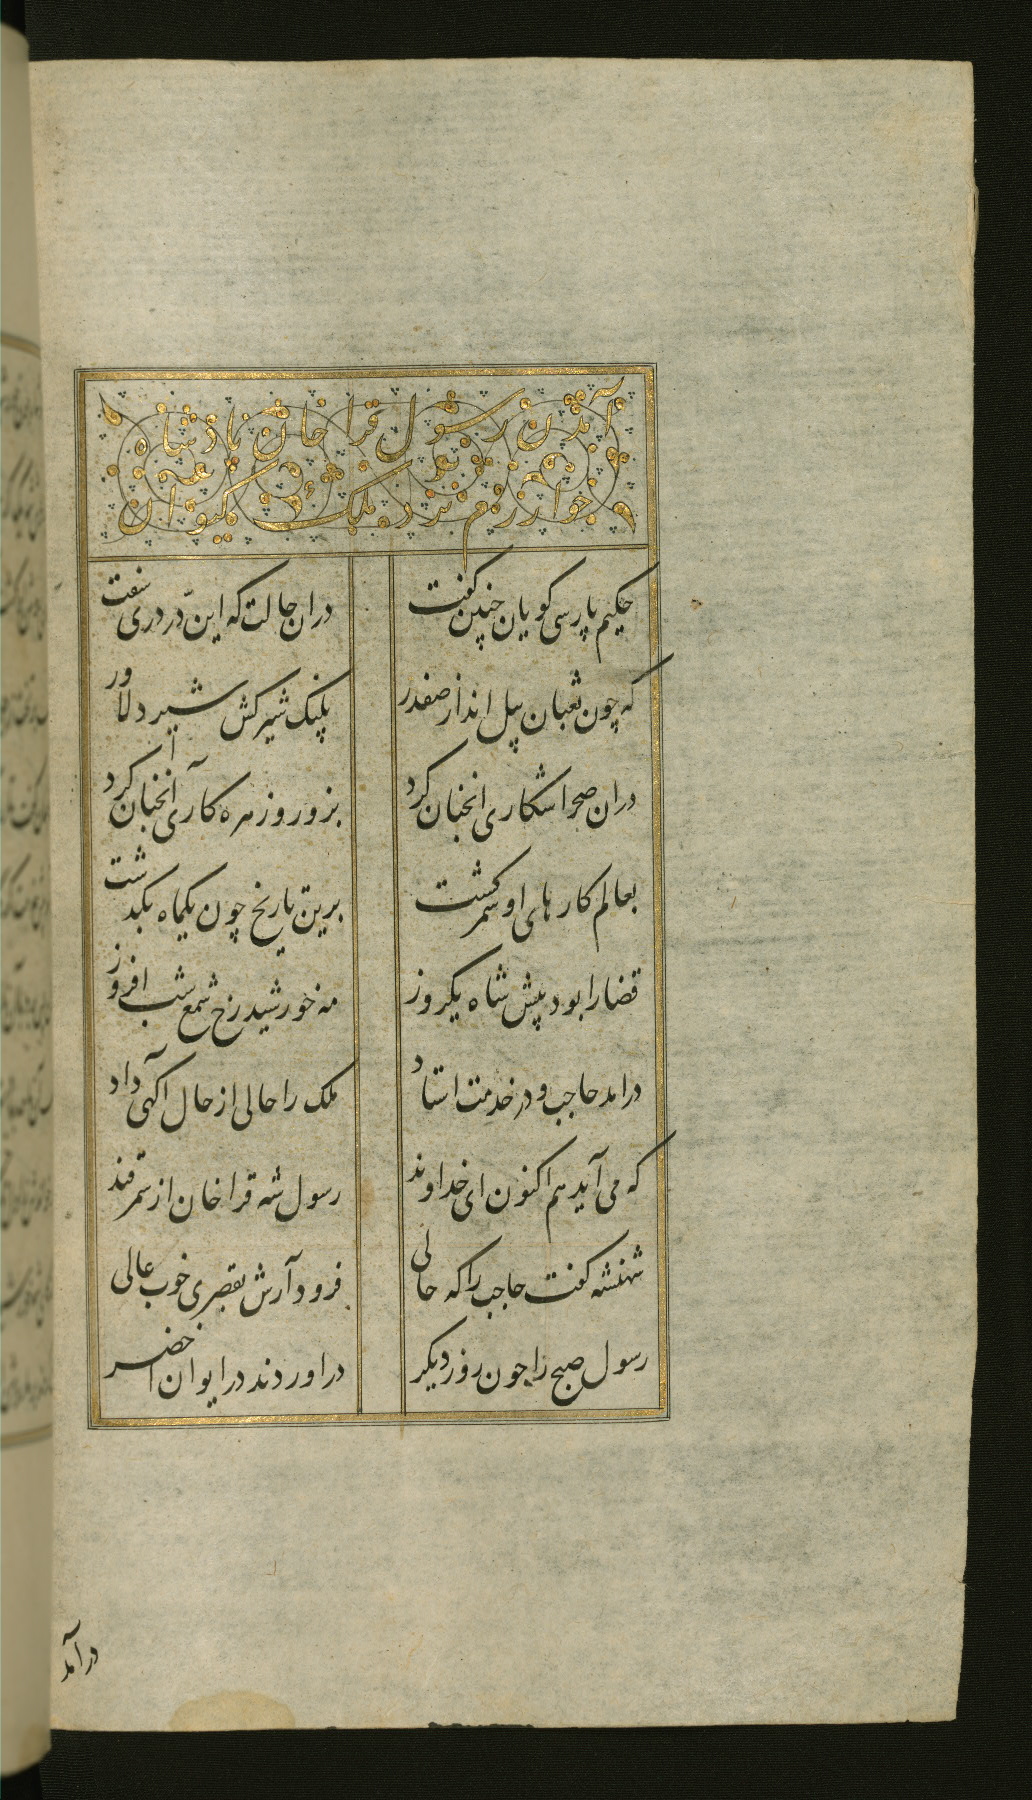 آمدن رسول قراخان پادشاه
خوارزم نزد ملک کیوان
حکیم پارسی کویان چنین کفت
دران حالت که این در دری سفت
که چون ثعبان پیل انداز صفدر
پلنک شیر کش شیر دلاور
دران صحرا شکاری انچنان کرد
بزور و زهره کآری آنچنان کرد
بعالم کارهای او سمر کشت
برین تاریخ چون یکماه بکذشت
قضا را بود پیش شاه یکروز
مه خورشید رخ شمع شب افروز
درامد حاجب و در خدمت استاد
ملک را حالی از حال آکهی داد
که می آید هم اکنون ای خداوند
رسول شه قراخان از سمرقند
شهنشه کفت حاجب را که حالی
فرود آرش بقصری خوب عالی
رسول صبح را چون روز دیکر
دراوردند در ایوان اخضر
درآمد